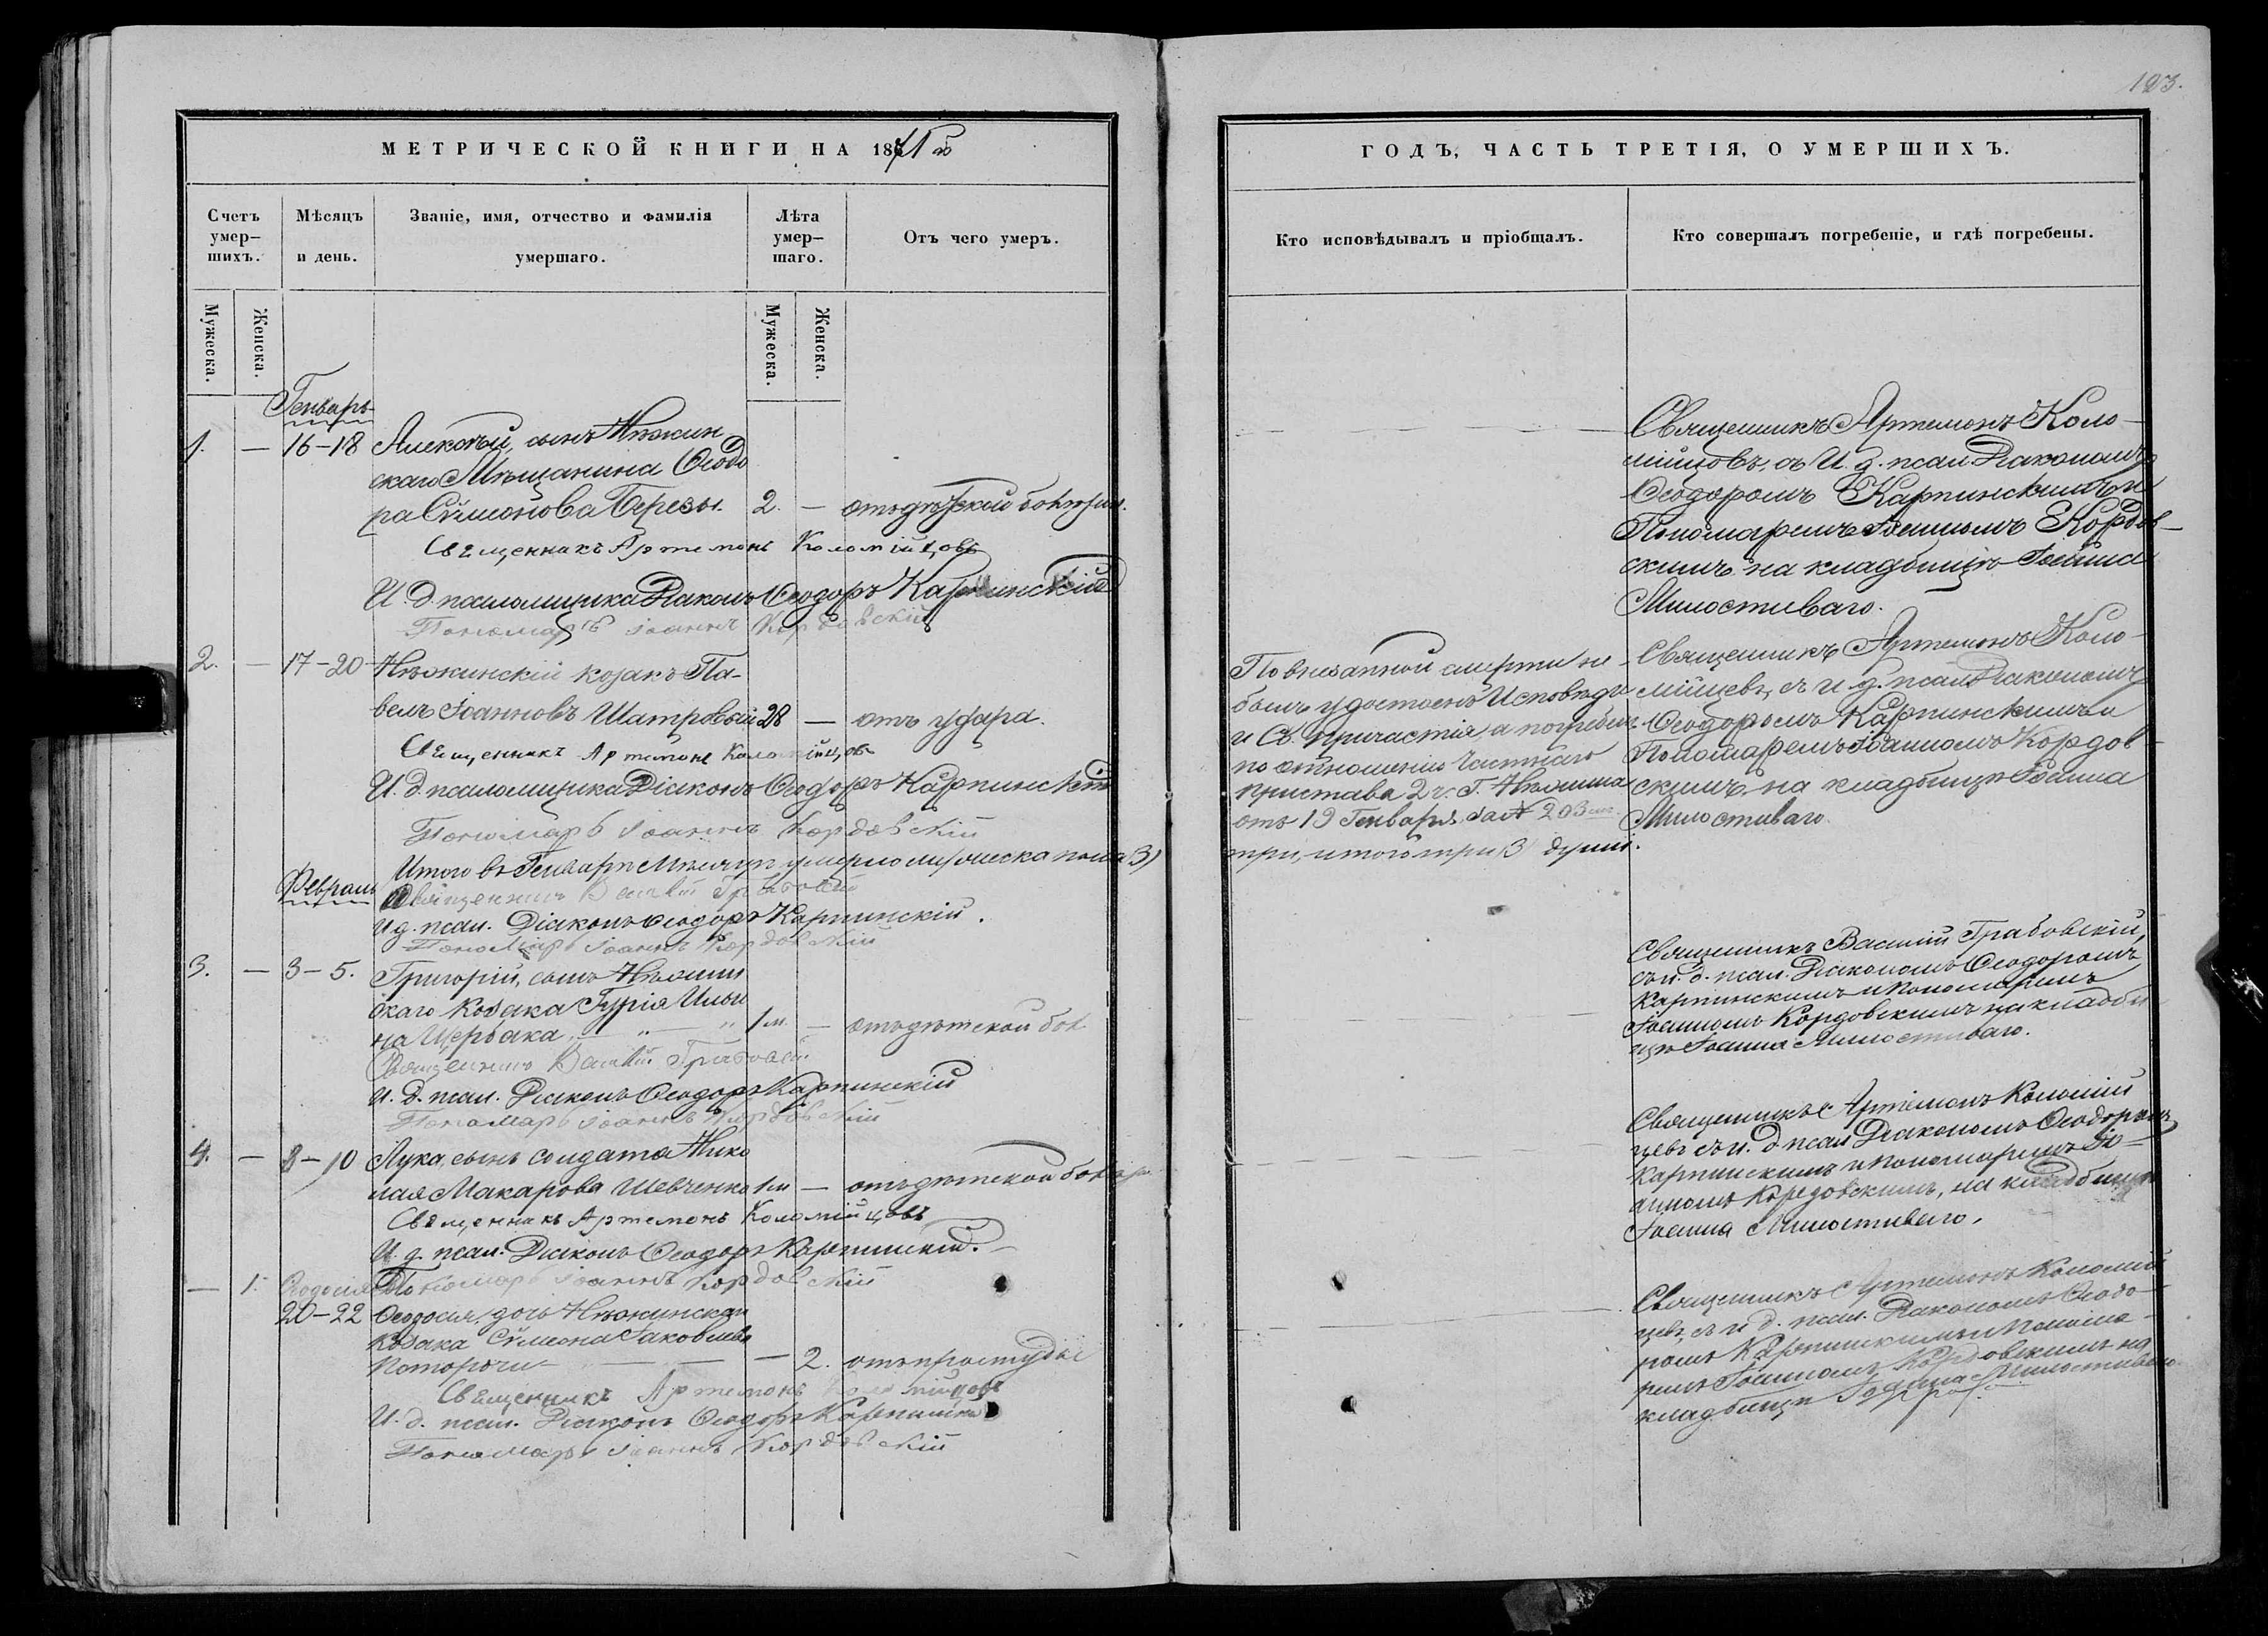 123.
МЕТРИЧЕСКОЙ КНИГИ НА 1871й
ГОДЪ, ЧАСТЬ ТРЕТІЯ, О УМЕРШИХЪ.
Счетъ умер—шихъ.
Мѣсяцъ и день.
Званіе, имя, отчество и фамилія умершаго.
Лѣта умер—шаго.
Отъ чего умеръ.
Кто исповѣдывалъ и пріобщалъ.
Кто совершалъ погребеніе, и гдѣ погребены.
Мужеска.
Женска.
Мужеска.
Женска.
Генварь
1. — 16-18 Алексѣй, сынъ Нѣжин
скаго Мѣщанина Ѳеодо
ра Сѷмеонова Березы. 2. — отъ дѣтской
Священникъ Артемонъ Коломійцовъ
И. д. псаломщика Діаконъ Ѳеодоръ Карпинскій
Пономарь Іоаннъ Кордовскій
Священникъ Артемонъ Коло-
мійцовъ, съ И. д. псал. Діакономъ
Ѳеодоромъ Карпинскимъ и
Пономаремъ Іоанномъ Кордов-
скимъ на кладбищѣ Іоанна
Милостиваго.
2. — 17-20 Нѣжинскій козакъ Па-
велъ Іоанновъ Шатровый 28 — отъ удара.
Священникъ Артемонъ Коломійцовъ
И. д. псаломщика Діаконъ Ѳеодоръ Карпинскій
Пономарь Іоаннъ Кордовскій
По внезапной смерти не
былъ удостоенъ Исповѣди
и Св. Причастія, а погребенъ
по отношенію Частнаго
Пристава 2 ч. Г. Нѣжина
отъ 19 Генваря за № 203
Священникъ Артемонъ Коло-
мійцевъ, съ и. д. псал. Діакономъ
Ѳеодоромъ Карпинскимъ и
Пономаремъ Іоанномъ Кордов-
скимъ, на кладбищѣ Іоанна
Милостиваго
Итого въ Генварѣ Мѣсяцѣ умерло мужеска пола 3)
три, итого три 3 души.
Февраль
Священникъ Василій Грабовскій
И д. псал. Діаконъ Ѳеодоръ Карпинскій.
Пономарь Іоаннъ Кордовскій
3. — 3-5. Григорій, сынъ Нѣжин
скаго Козака Гурія Ильи
на Щербака 1 м. — отъ дѣтской бол
Священникъ Василій Грабовскій
И. д. псал. Діаконъ Ѳеодоръ Карпинскій
Пономарь Іоаннъ Кордовскій
Священникъ Василій Грабовскій,
съ и. д. псал. Діакономъ Ѳеодоромъ
Карпинскимъ и Пономаремъ
Іоанномъ Кордовскимъ на кладби
щѣ Іоанна Милостиваго.
4. — 8-10 Лука, сынъ солдата Нико
лая Макарова Шевченко 1 м — отъ дѣтской
Священникъ Артемонъ Коломійцовъ
И. д. псал. Діаконъ Ѳеодоръ Карпинскій.
Пономарь Іоаннъ Кордовскій
Священникъ Артемонъ Коломій
цевъ съ и. д. псал Діакономъ Ѳеодоромъ
Карпинскимъ и Пономаремъ Іо-
анномъ Кордовскимъ, на кладбищѣ
Іоанна Милостиваго.
— 1. Ѳеодосія
20-22 Ѳеодосія, дочь Нѣжинскаго
Козака Сѷмеона Іаковлева
— 2. отъ простуды
Священникъ Артемонъ Коломійцовъ
И. д. псал. Діаконъ Ѳеодоръ Карпинскій
Пономарь Іоаннъ Кордовскій
Священникъ Артемонъ Коломій
цевъ, съ и д. псал. Діакономъ Ѳеодо-
ромъ Карпинскимъ и Понома-
ремъ Іоанномъ Кордовскимъ на
кладбищѣ Іоанна Милостиваго